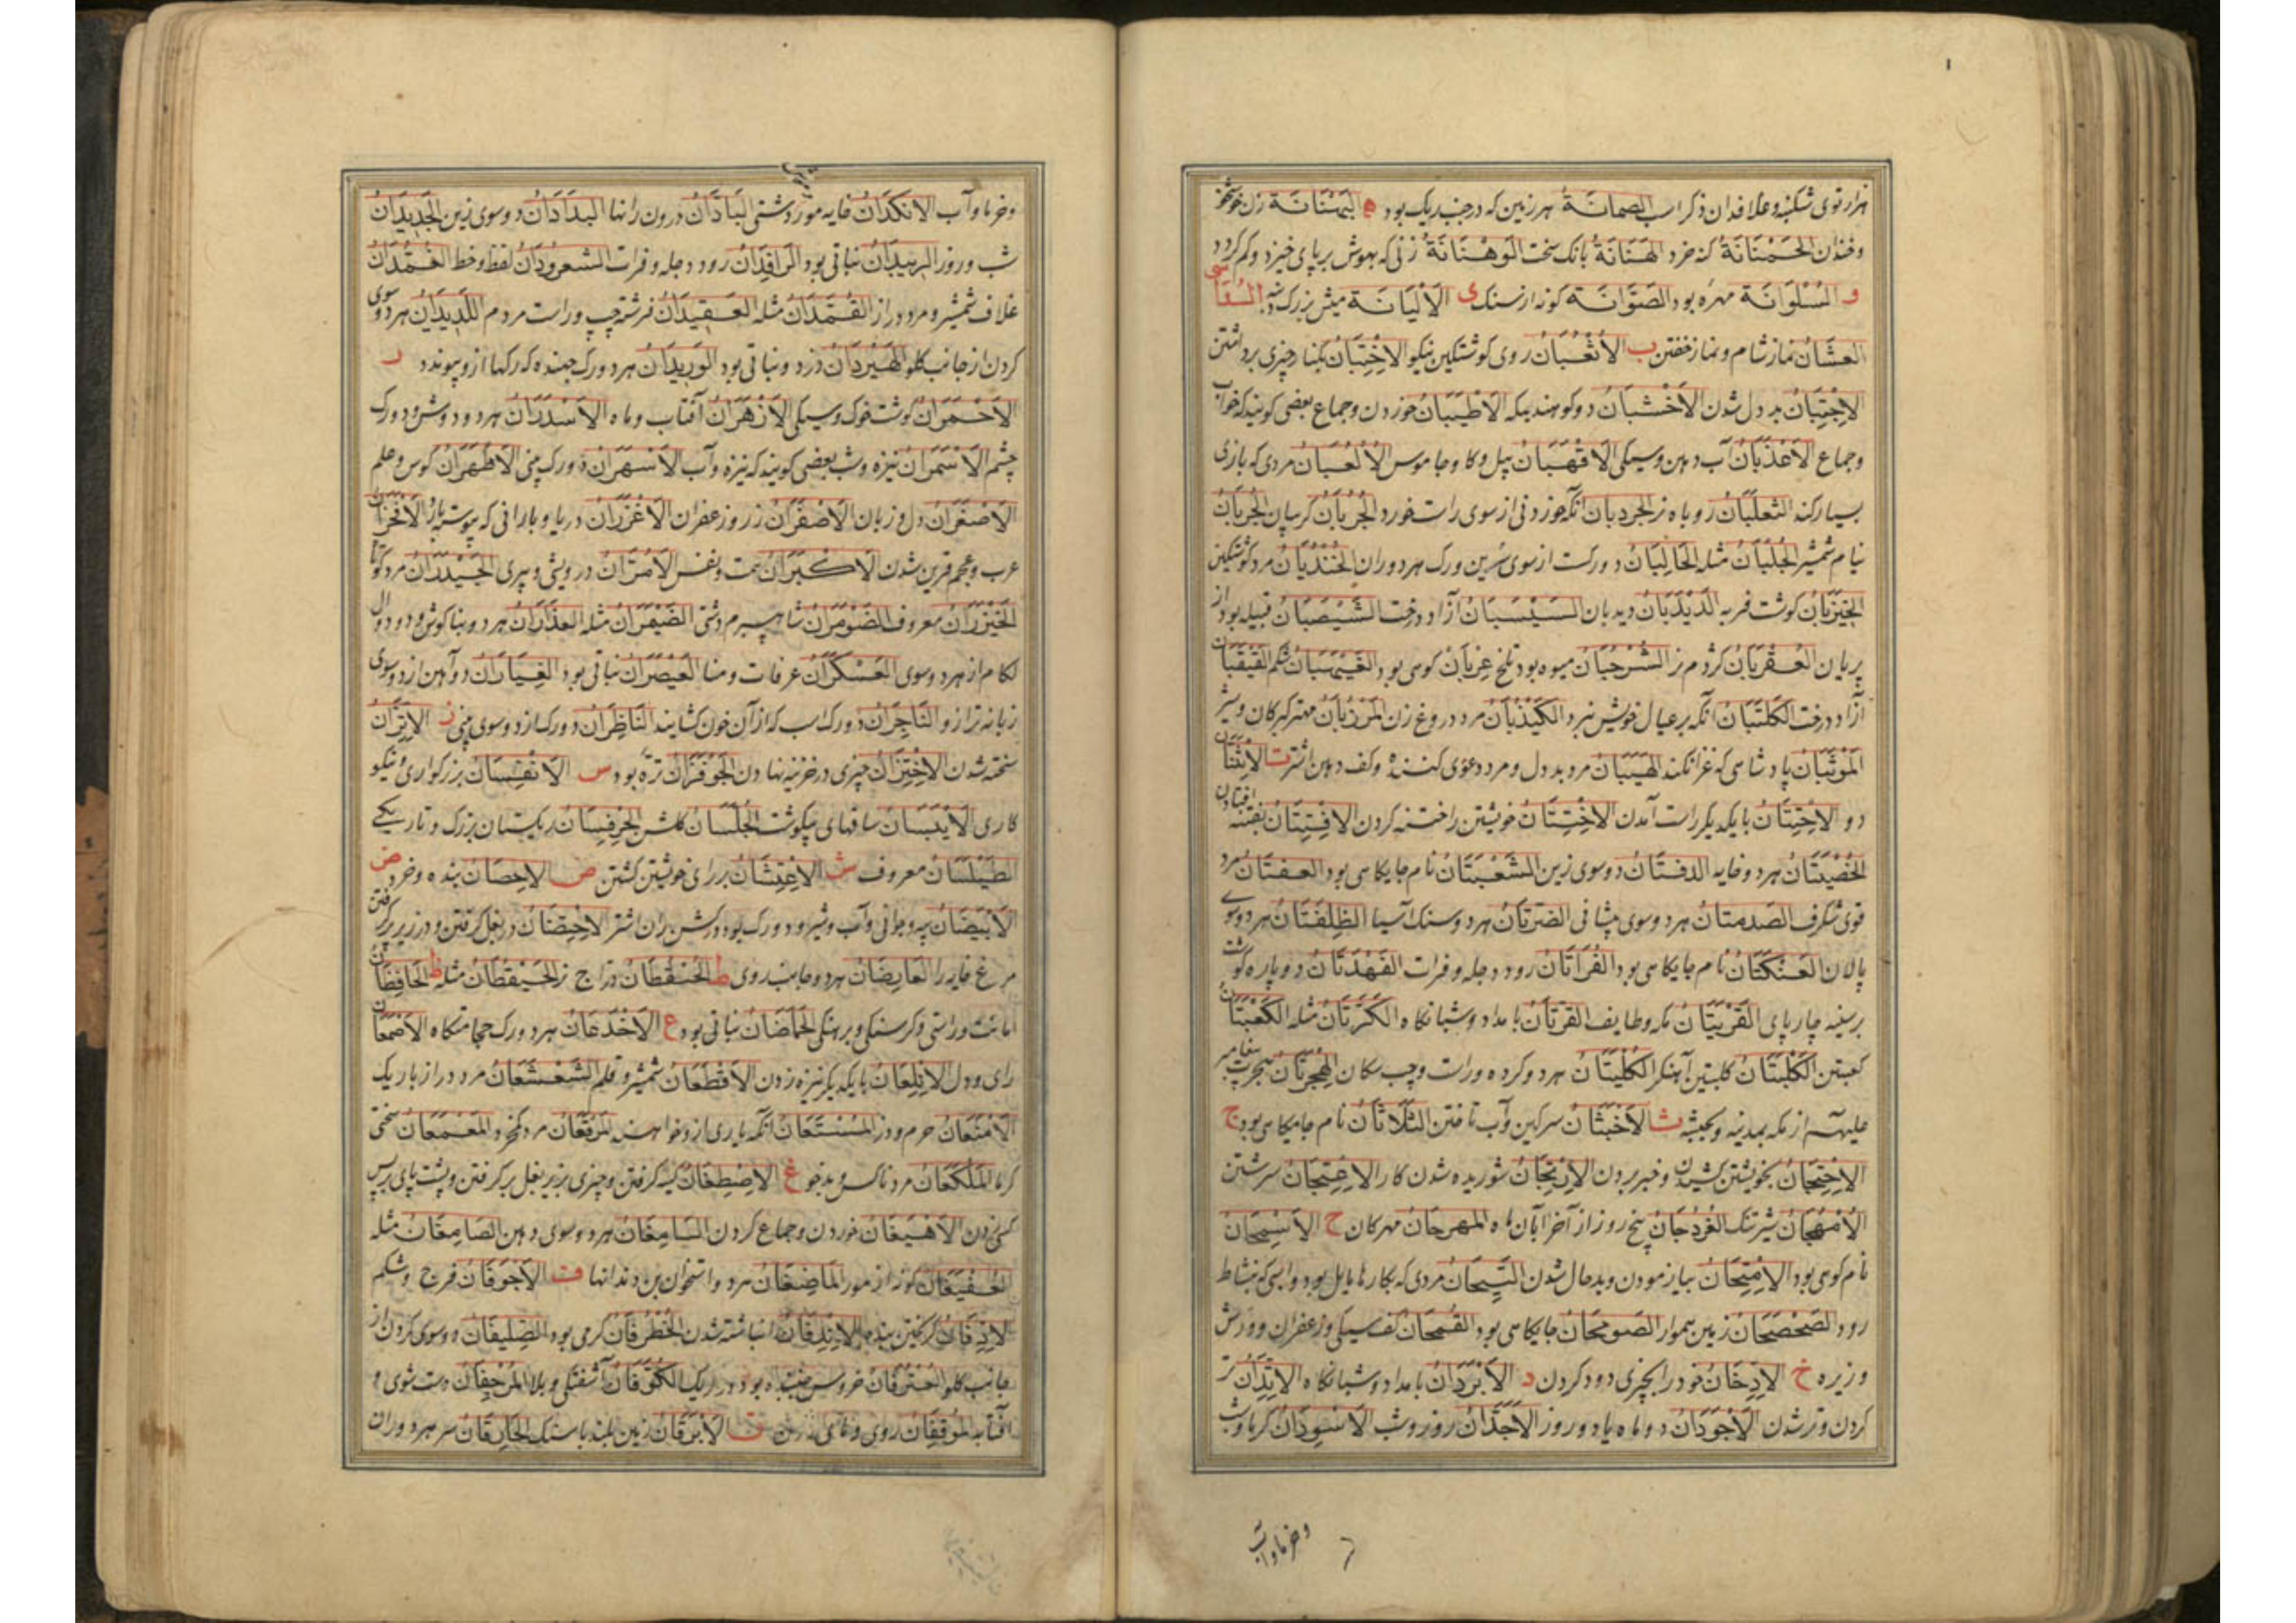 هزار توی شکنبه و علاقدان ذکر اسب الصمانَة هر زمین که در جنب ریک بود ه البَهْنَانَة زن خوشخو
و خندان الحَمْنَانَة کنه خرد الهَنَانَةُ بانک سخت الوَهْنَانَة زنی که بهوش بر پای خیزد و کم کردد
و السُلْوَانَة مهره بود الصَوَّانَة کونه از سنک ی الاَلْیَانَة میش بزرک
العشَآنُ نماز شام و نماز خفتن ب الاَثْعُبَانُ روی کوشتکین نیکو الاِخْتِبَانُ بکنار چیزی برداشتن
الاِجْتِبَانُ بد دل شدن الاَخْشَبَانُ دو کوهند بمکه الاَطْیَبَانُ خوردن و جماع بعضی کویند که خواب
و جماع الاَعْذَبَانُ آب دهن و سیکی الاَقْهَبَانُ پیل و کاو جاموس الاُلْعُبَانُ مردی که بازی
بسیار کند الثعلَبَانُ روباه نر الجَردبان آنکه خوردنی از سوی راست خورد الجُرُبَّانُ کریبان الجُرُبَّانُ
نیام شمشیر الجُلُبَّانُ مثله الحَالِبَانُ دو رکست از سوی سُرین و رک هر دو ران الخُنْذُبَانُ مرد کوشتکین
الخَیْزَبَانُ کوشت فربه الدَیْدَبَانُ دیدبان السَیْسَبَانُ آزاد درخت الشَیْصَبَانُ قبیله بود از
پریان العُقْرُبَانُ کژدم نر الشُرْجُبَانُ میوه بود تلخ غربانُ کوهی بود الغَیْهَبَانُ شکم القَیْقَبَانُ
آزاد درخت الکَلْتَبَانُ آنکه بر عیال خویش نبرد الکَیْذُبَانُ مرد دروغ زن المَرْزُبَانُ مهتر کبرکان و شیر
المَوْثَبَانُ پادشاهی که غزا نکند الهَیَّبَانُ مرد بد دل و مرد دعوی کننده و کف دهن اشتر ت الاِثْنَتَانُ
دو الاِخْتِتَانُ با یکدیکر راست آمدن الاِخْتِتَانُ خویشتن را ختنه کردن الاِفْتِتَانُ بفتنه افتادن
الخُصْیَتَانُ هر دو خایه الدفتَانُ دو سوی زین الشَعْبَتَانُ نام جایکاهی بود العفتَانُ مرد
قوی شکرف الصَدمتانُ هر دو سوی پیشانی الضَرَّتَانُ هر دو سنک آسیا الظِلِفَتَانُ هر دو سوی
پالان العَنْکَتَانُ نام جایکاهی بود الفُرَاتَانُ رود دجله و فرات الفَهْدَتَانُ دو پاره کوشت
بر سینه چارپای القَرْیَتَانُ مکه و طایف القَرَّتَانُ بامداد و شبانکاه الکَرَّتَانُ مثله الکَعْبَتَانُ
کعبتین الکَلْبَتَانُ کلبتین آهنکر الکُلْیَتَانُ هر دو کرده و راست و چپ کمان الهِجْرَتَانُ هجرت پیغامبر
علیه از مکه بمدینه و بحبشه ث الاَخْبَثَانُ سرکین و آب تافتن الثَلَاثَانُ نام جایکاهی بود ج
الاِحْتِجَانُ بخویشتن کشیدن و خبر بردن الاِرْتِجَانُ شوریده شدن کار الاِعْتِجَانُ سرشتن
الاُمْهُجَانُ شیر تنک الفُرْدُجَانُ پنج روز از آخر آبان ماه المهرجَانُ مهرکان ح الاَسْبِحَانُ
نام کوهی بود الاِمْتِحَانُ بیازمودن و بد حال شدن التَیِّحَانُ مردی که بکارها مایل بود و اسبی که بنشاط
رود الصَحْصَحَانُ زمین هموار الصَوْمَحَانُ جایکاهی بود القُمَّحَانُ کف سیکی و زعفران و ورس
و زیره خ الاِدِّخَانُ خود را بچیزی دود کردن د الاَبْرَدَانُ بامداد و شبانکاه الاِتِّدَانُ تر
کردن و تر شدن الاَجْوَدَانُ دو ماه یا دو روز الاَجَدَّانُ روز و شب الاَسْوَدَانُ خرما و آب
و خرما و آب
و خرما و آب الاَنْکَدَانُ خایه مور دشتی البَادَّانُ درون رانها البدَادَانُ دو سوی زین الجَدِیدَانُ
شب و روز البریدَانُ نباتی بود الرَافِدَانُ رود دجله و فرات الشعرودَانُ لفظ و خط الغُمُدَّانُ
غلاف شمشیر و مرد دراز القُمُدَّانُ مثله العقِیدَانُ فرشته چپ و راست مردم اللَدِیدَانُ هر دو سوی
کردن از جانب کلو الهَیْرُدَانُ دزد و نباتی بود الوَرِیدَانُ هر دو رک جهنده که رکها ازو پیوندد ر
الاَحْمَرَانُ کوشت خوک و سیکی الاَزْهَرَانُ آفتاب و ماه الاَسْدَرَانُ هر دو دوش و دو رک
چشم الاَسْمَرَانُ نیزه و شب بعضی کویند که نیزه و آب الاَسْهَرَانُ دو رک بینی الاَظْهَرَانُ کوس و علم
الاَصْغَرَانُ دل و زبان الاَصْفَرَانُ زر و زعفران الاَغْزَرَانُ دریا و بارانی که پیوسته بارد
عرب و عجم قرین شدن الاَکْبَرَانُ همت و نفس الاَمَرَّانُ درویشی و پیری الجَیْدَرَانُ مرد کوتاه
الخَیْزُرَانُ معروف الضَوْمَرَانُ شاهسپرم دشتی الضَیْمُرَانُ مثله العِذَارَانُ هر دو بناکوش و دو دوال
لکام از هر دو سوی العَسْکَرَانُ عرفات و منا العَیْصَرَانُ نباتی بود الغِیَارَانُ دو آهن از دو سوی
زبانه ترازو النَاجِرَانُ دو رک اسب که از آن خون کشایند النَاظِرَانُ دو رک از دو سوی بینی ز الاِتِّزَانُ
سخته شدن الاِخْتِزَانُ چیزی در خزینه نهادن الجَوْفَزَانُ تره بود س الاَنْفِسَانُ بزرکواری و نیکو
کاری الاَیْبَسَانُ ساقهای بیکوشت الجُلَّسَانُ کلشن الخِرفِسَانُ ریکستان بزرک و تاریکی
الطَیْلَسَانُ معروف ش الاِغْتِشَانُ بر رای خویشتن کشتن ص الاِحصَانُ بنده و خر ض
الاَبْیَضَانُ پیه و جوانی و آب و شیر و دو رک بود در کش ران اشتر الاِحْتِضَانُ در بغل کرفتن و در زیر پر کرفتن
مرغ خایه را العَارِضَانُ هر دو جانب روی ط الحَنقُطَانُ دراج نر الحَیْقُطَانُ مثله ظ الحَافِظَانُ
امانت و راستی و کرسنکی و برهنکی الحَمَاضَانُ نباتی بود ع الاَخْدَعَانُ هر دو رک حجامتکاه الاَصْمَعَانُ
رای و دل الاِتِّلِعَانُ با یکدیکر نیزه زدن الاَقْطَعَانُ شمشیر و قلم الشَعْشَعَانُ مرد دراز باریک
الاَمْنَعَانُ حرم و دز المُسْتَعَانُ آنکه یاری ازو خواهند المَرْقَعَانُ مرد المَعْمَعَانُ سختی
کرما المَلْکَعَانُ مرد ناکس و بدخو غ الاِصْطِغَانُ کینه کرفتن و چیزی بزیر بغل بر کرفتن و پشت پای بر پس
کسی زدن الاَهْیَغَانُ خوردن و جماع کردن السَامِغَانُ هر دو سوی دهن الصَامِغَانُ مثله
کونه از مور المَاضِغَانُ هر دو استخوان بن دندانها ف الاَجْوَفَانُ فرج و شکم
انباشته شدن الخُطْرُفَانُ کرمی بود الصَلِیفَانُ دو سوی کردن از
جانب کلو العُتْرُفَانُ خروس الکُوَّفَانُ آشفتکی و بلا المُرْجِفَانُ دست شوی و
آفتابه المُوقِفَانُ روی و ق الاَبْرَقَانُ زمین بلند با سنک الحَارِقَانُ سر هر دو ران